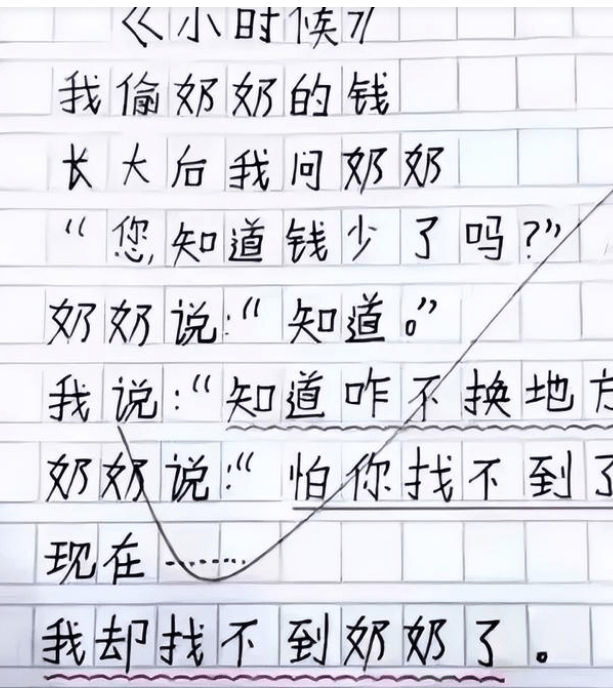 《小时候》
我偷奶奶的钱
长大后我问奶奶
“您知道钱少了吗?”
奶奶说:“知道。”
我说:“知道咋不换地方
奶奶说:“怕你找不到了
现在……
我却找不到奶奶了。